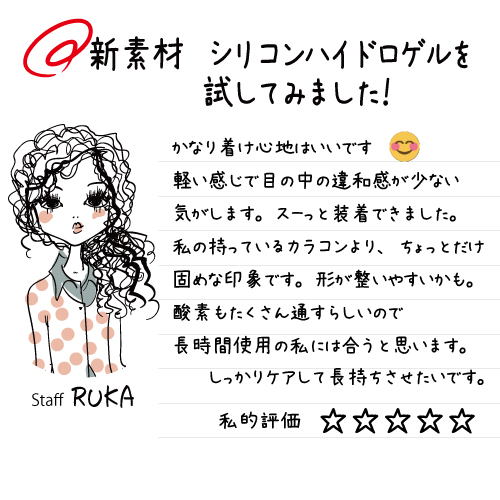 @新素材 シリコンハイドロゲルを
試してみました!
かなり着け心地はいいです 😊
軽い感じで目の中の違和感が少ない
気がします。スーっと装着できました。
私の持っているカラコンより、ちょっとだけ
固めな印象です。形が整いやすいかも。
酸素もたくさん通すらしいので
長時間使用の私には合うと思います。
しっかりケアして長持ちさせたいです。
Staff RUKA
私的評価 ☆☆☆☆☆